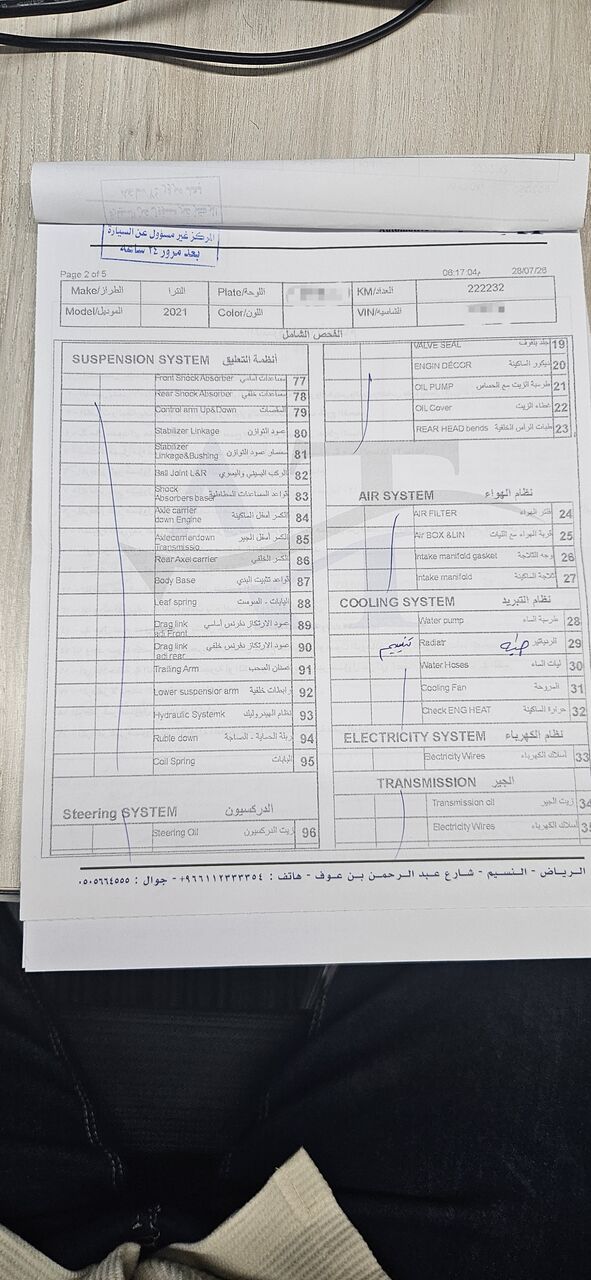 المركز غير مسؤول عن السيارة
بعد مرور ٢٤ ساعة
Page 2 of 5
08:17:04م 28/07/26
Make/الطراز النترا Plate/اللوحة KM/العداد 222232
Model/الموديل 2021 Color/اللون VIN/الشاسيه
الفحص الشامل
SUSPENSION SYSTEM أنظمة التعليق
Front Shock Absorber مساعدات أمامي 77
Rear Shock Absorber مساعدات خلفي 78
Control arm Up&Down المقصات 79
Stabilizer Linkage عمود التوازن 80
Stabilizer Linkage&Bushing مسمار عمود التوازن 81
Ball Joint L&R 82
Shock Absorbers base قواعد المساعدات المطاطية 83
Axle carrier down Engine الكسر أسفل الماكينة 84
Axlecarrierdown Transmissio الكسر أسفل الجير 85
Rear Axel carrier الكسر الخلفي 86
Body Base قواعد تثبيت البدي 87
Leaf spring اليايات - السوست 88
Drag link adj Front عمود الارتكاز بفرنس أمامي 89
Drag link adj rear عمود الارتكاز بفرنس خلفي 90
Trailing Arm 91
Lower suspensior arm رابطات خلفية 92
Hydraulic Systemk نظام الهيدروليك 93
Ruble down 94
Coil Spring اليايات 95
Steering SYSTEM الدركسيون
Steering Oil زيت الدركسيون 96
VALVE SEAL جلد بلوف 19
ENGIN DÉCOR ديكور الماكينة 20
OIL PUMP طرمبة الزيت مع الحساس 21
OIL Cover غطاء الزيت 22
REAR HEAD bends طبات الرأس الخلفية 23
AIR SYSTEM نظام الهواء
AIR FILTER فلتر الهواء 24
Air BOX &LIN قربة الهواء مع الليات 25
Intake manifold gasket وجه الثلاجة 26
Intake manifold ثلاجة الماكينة 27
COOLING SYSTEM نظام التبريد
Water pump طرمبة الماء 28
Radiatr الرديتر 29
Water Hoses ليات الماء 30
Cooling Fan المروحة 31
Check ENG HEAT حرارة الماكينة 32
ELECTRICITY SYSTEM نظام الكهرباء
Electricity Wires أسلاك الكهرباء 33
TRANSMISSION الجير
Transmission oil زيت الجير 34
Electricity Wires أسلاك الكهرباء 35
الرياض - النسيم - شارع عبد الرحمن بن عوف - هاتف : ٩٦٦١١٢٣٣٣٣٥٤+ - جوال : ٠٥٠٥٦٦٤٥٥٥